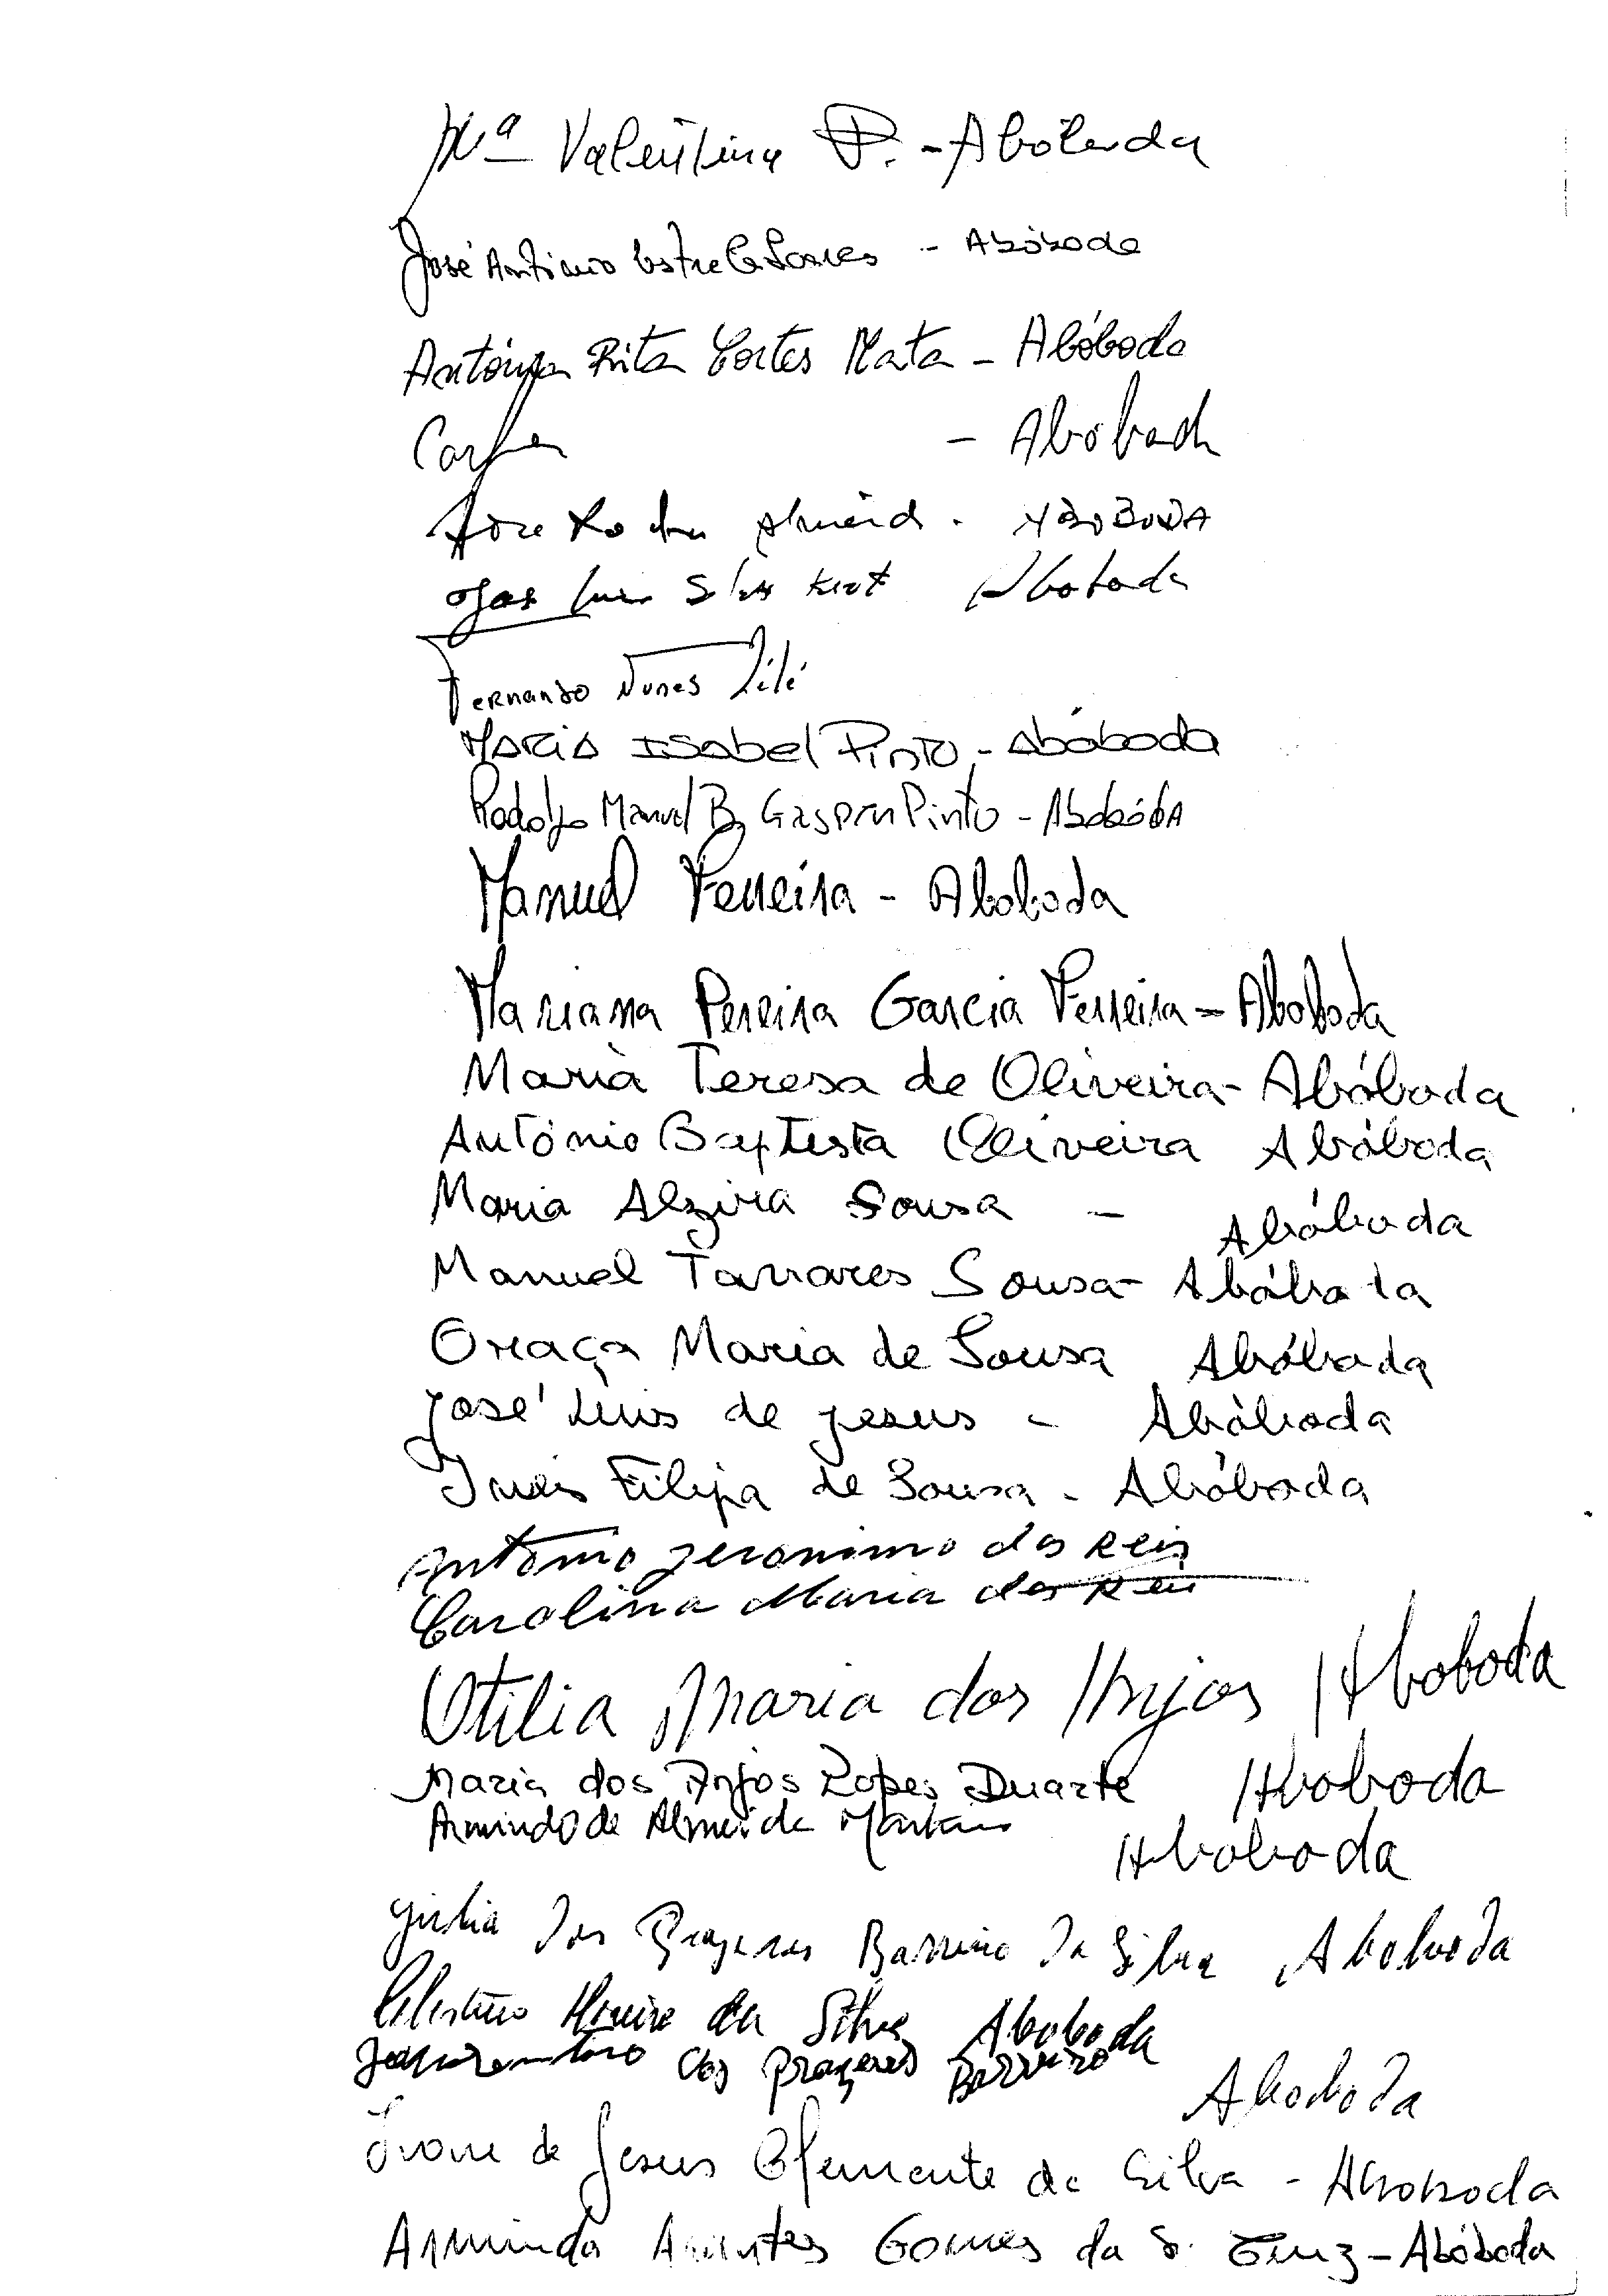 Mª Valentina P. - Abóboda
José António Estrela Soares - Abóboda
Antónia Rita Cortes Mata - Abóboda
- Abóboda
José Almeida . ABOBODA
Luis Aboboda
Fernando Nunes Zilé
Maria Isabel Pinto - Abóboda
Rodolfo Manuel B. Gaspar Pinto - Abobóda
Manuel Ferreira - Aboboda
Mariana Pereira Garcia Ferreira - Aboboda
Maria Teresa de Oliveira - Abóboda
António Baptista Oliveira Abóboda
Maria Alzira Sousa - Abóboda
Manuel Tavares Sousa - Abóboda
Graça Maria de Sousa Abóboda
José Luis de Jesus - Abóboda
Inês Filipa de Sousa - Abóboda
Antonio Jeronimo dos Reis
Carolina Maria dos Reis
Otilia Maria dos Anjos Aboboda
Maria dos Anjos Lopes Duarte Aboboda
Armindo de Almeida Martins Aboboda
Julia dos Prazeres Barreiro da Silva Aboboda
Celestino da Silva Aboboda
dos Prazeres Barreiro Aboboda
Ivone de Jesus Clemente da Silva - Aboboda
Arminda Gomes da S. Cruz - Abóboda